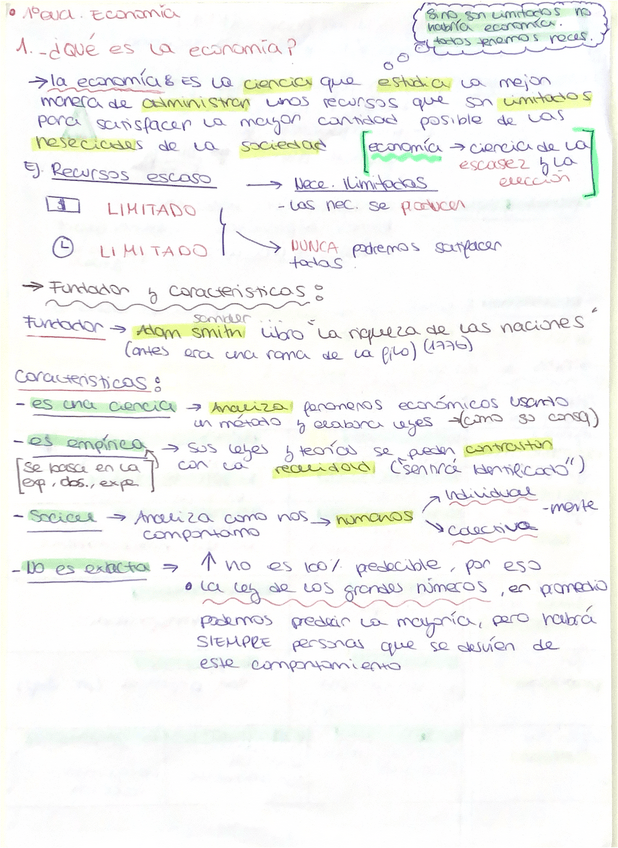 • 1ª eva. Economía
Si no son limitados no
habría economía.
todos tenemos neces.
1.- ¿Qué es la economía?
→ la economía: ES La ciencia que estudia la mejor
manera de administrar unos recursos que son limitados
para satisfacer la mayor cantidad posible de las
nesecidades de la sociedad
[economía → ciencia de la
escasez y la
elección]
Ej. Recursos escaso → Nece. Ilimitadas
$ LIMITADO - Las nec. se producen
L LIMITADO → NUNCA podremos satisfacer
todas.
→ Fundador y características:
Fundador → Adam Smith Libro "La riqueza de las naciones"
(antes era una rama de la filo) (1776)
Características:
- es una ciencia → Analiza fenomenos económicos usando
un método y elabora leyes →(como so consq)
- es empírica → Sus leyes y teorías se pueden contrastar
con la realidad
[se basa en la
exp, obs., expe.]
- Social → Analiza como nos → humanos
comportamo
→ Individual
→ Colectiva
-mente
- No es exacta → ↑ no es 100% predecible, por eso
• La ley de los grandes números, en promedio
podemos predecir la mayoría, pero habrá
SIEMPRE personas que se desvíen de
este comportamiento